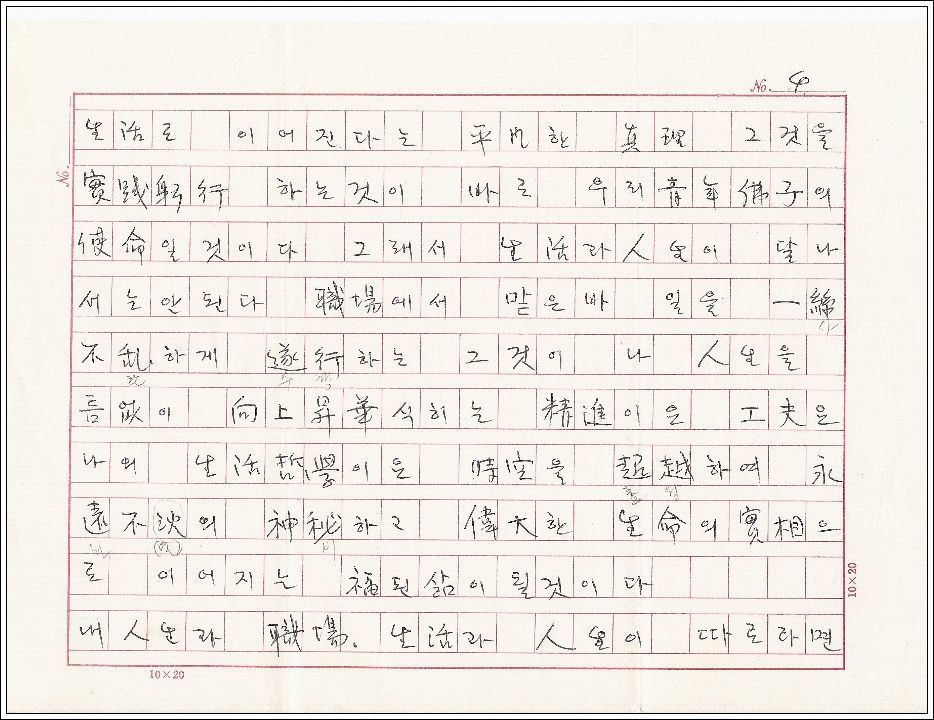 No. 4
生活로 이어진다는 平凡한 眞理 그것을
No.
實踐躬行 하는것이 바로 우리靑年佛子의
使命일것이다 그래서 生活과人生이 달나
서는안된다 職場에서 맡은바 일을 一絲
사
不乱.하게 遂行하는 그것이 나 人生을
란 수 행
틈없이 向上昇華식히는 精進이은 工夫은
나의 生活哲學이은 時空을 超越하여 永
초 월
遠不 의 神秘하고 偉大한 生命의實相으
비
로 이어지는 福된삶이될것이다
10×20
내人生과 職場. 生活과 人生이 따로라면
10×20